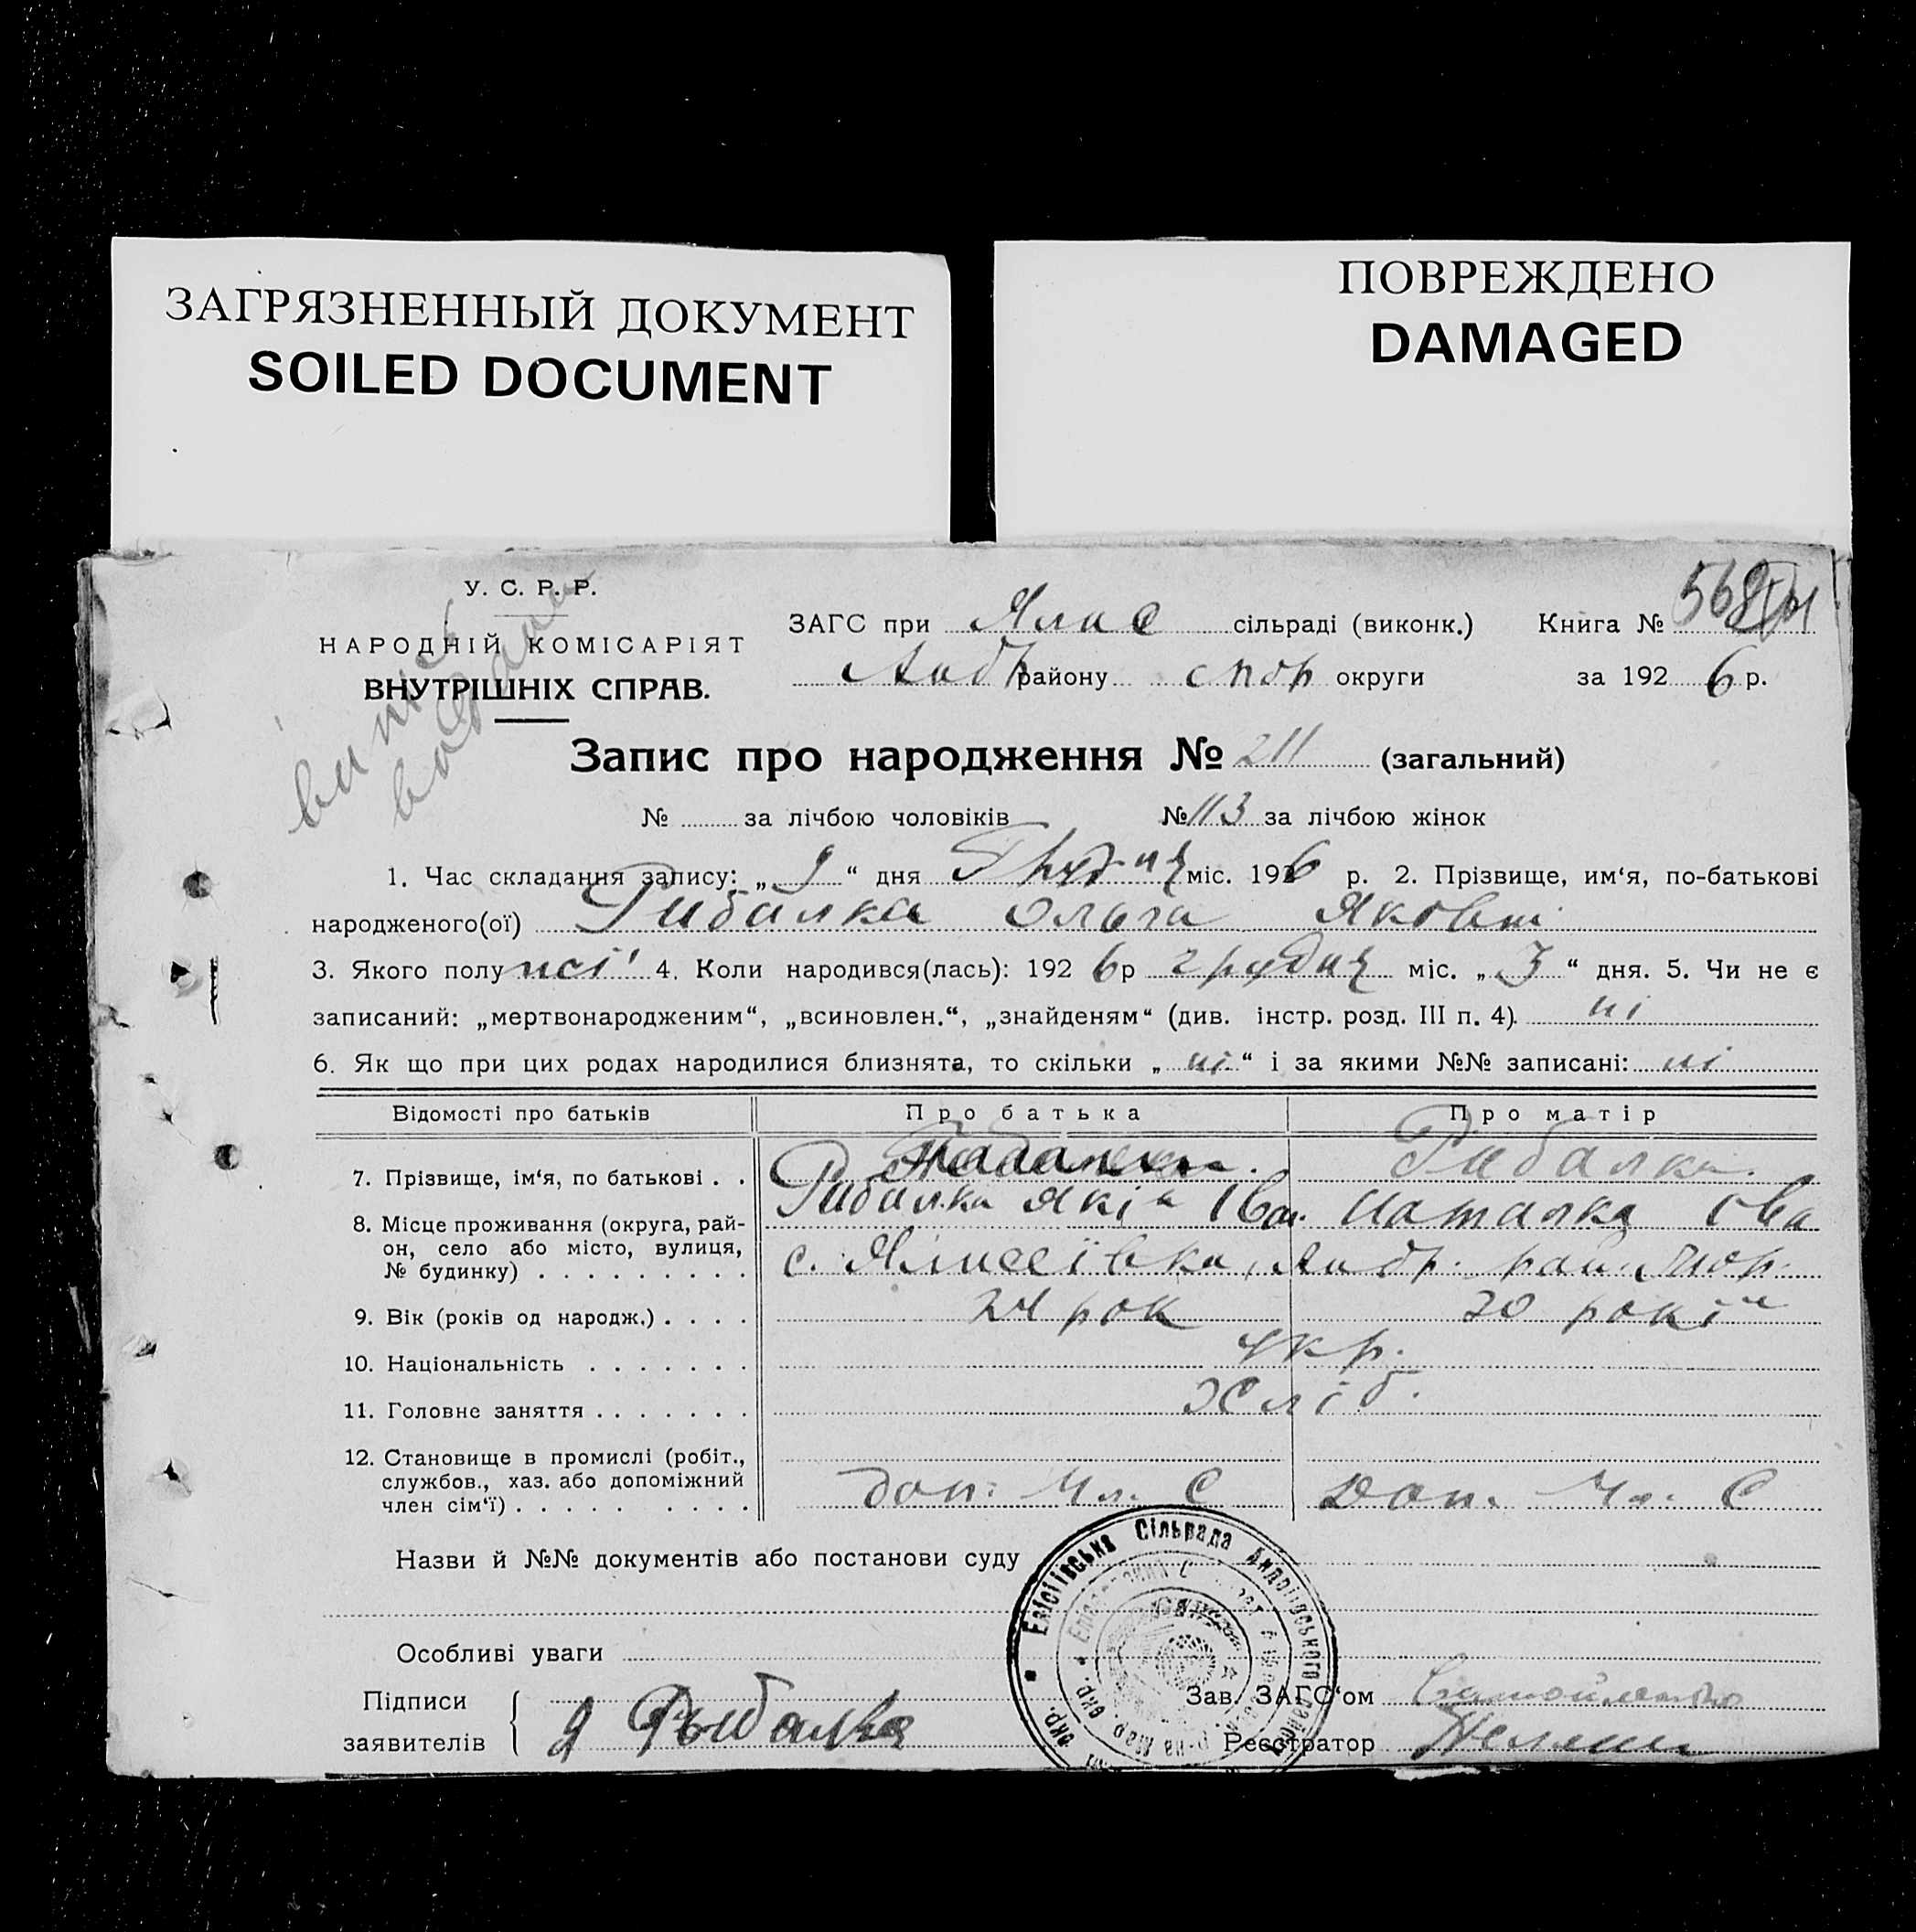 ЗАГРЯЗНЕННЫЙ ДОКУМЕНТ
SOILED DOCUMENT
ПОВРЕЖДЕНО
DAMAGED
У. С. Р. Р.
НАРОДНІЙ КОМІСАРІЯТ
ВНУТРІШНІХ СПРАВ.
ЗАГС при сільраді (виконк.) Книга № 568
Андр району округи за 192 6 р.
Запис про народження № 211 (загальний)
№ за лічбою чоловіків № 113 за лічбою жінок
1. Час складання запису: „ 9 “ дня Грудня міс. 1926 р. 2. Прізвище, им‘я, по-батькові
народженого(ої) Рибалка Ольга Яковн
3. Якого полу 4. Коли народився(лась): 192 6р грудня міс. „ 3 “ дня. 5. Чи не є
записаний: „мертвонародженим“, „всиновлен.“, „знайденям“ (див. інстр. розд. III п. 4). ні
6. Як що при цих родах народилися близнята, то скільки „ ні “ і за якими №№ записані: ні
Відомості про батьків Про батька Про матір
7. Прізвище, ім‘я, по батькові . . Рибалка Яків Іван. Рибалка. Наталка Іва
8. Місце проживання (округа, рай-
он, село або місто, вулиця,
№ будинку) . . . . . . . . . с. Андр. рай.
9. Вік (років од народж.) . . . . 24 рок 20 років
10. Національність . . . . . . . Укр.
11. Головне заняття . . . . . . . Хліб.
12. Становище в промислі (робіт.,
службов., хаз. або допоміжний
член сім‘ї) . . . . . . . . . Доп. Чл. С Доп. Чл. С
Назви й №№ документів або постанови суду
Особливі уваги
Підписи
заявителів Я Рыбалка
Зав. ЗАГС‘ом
Реєстратор
Сільрада